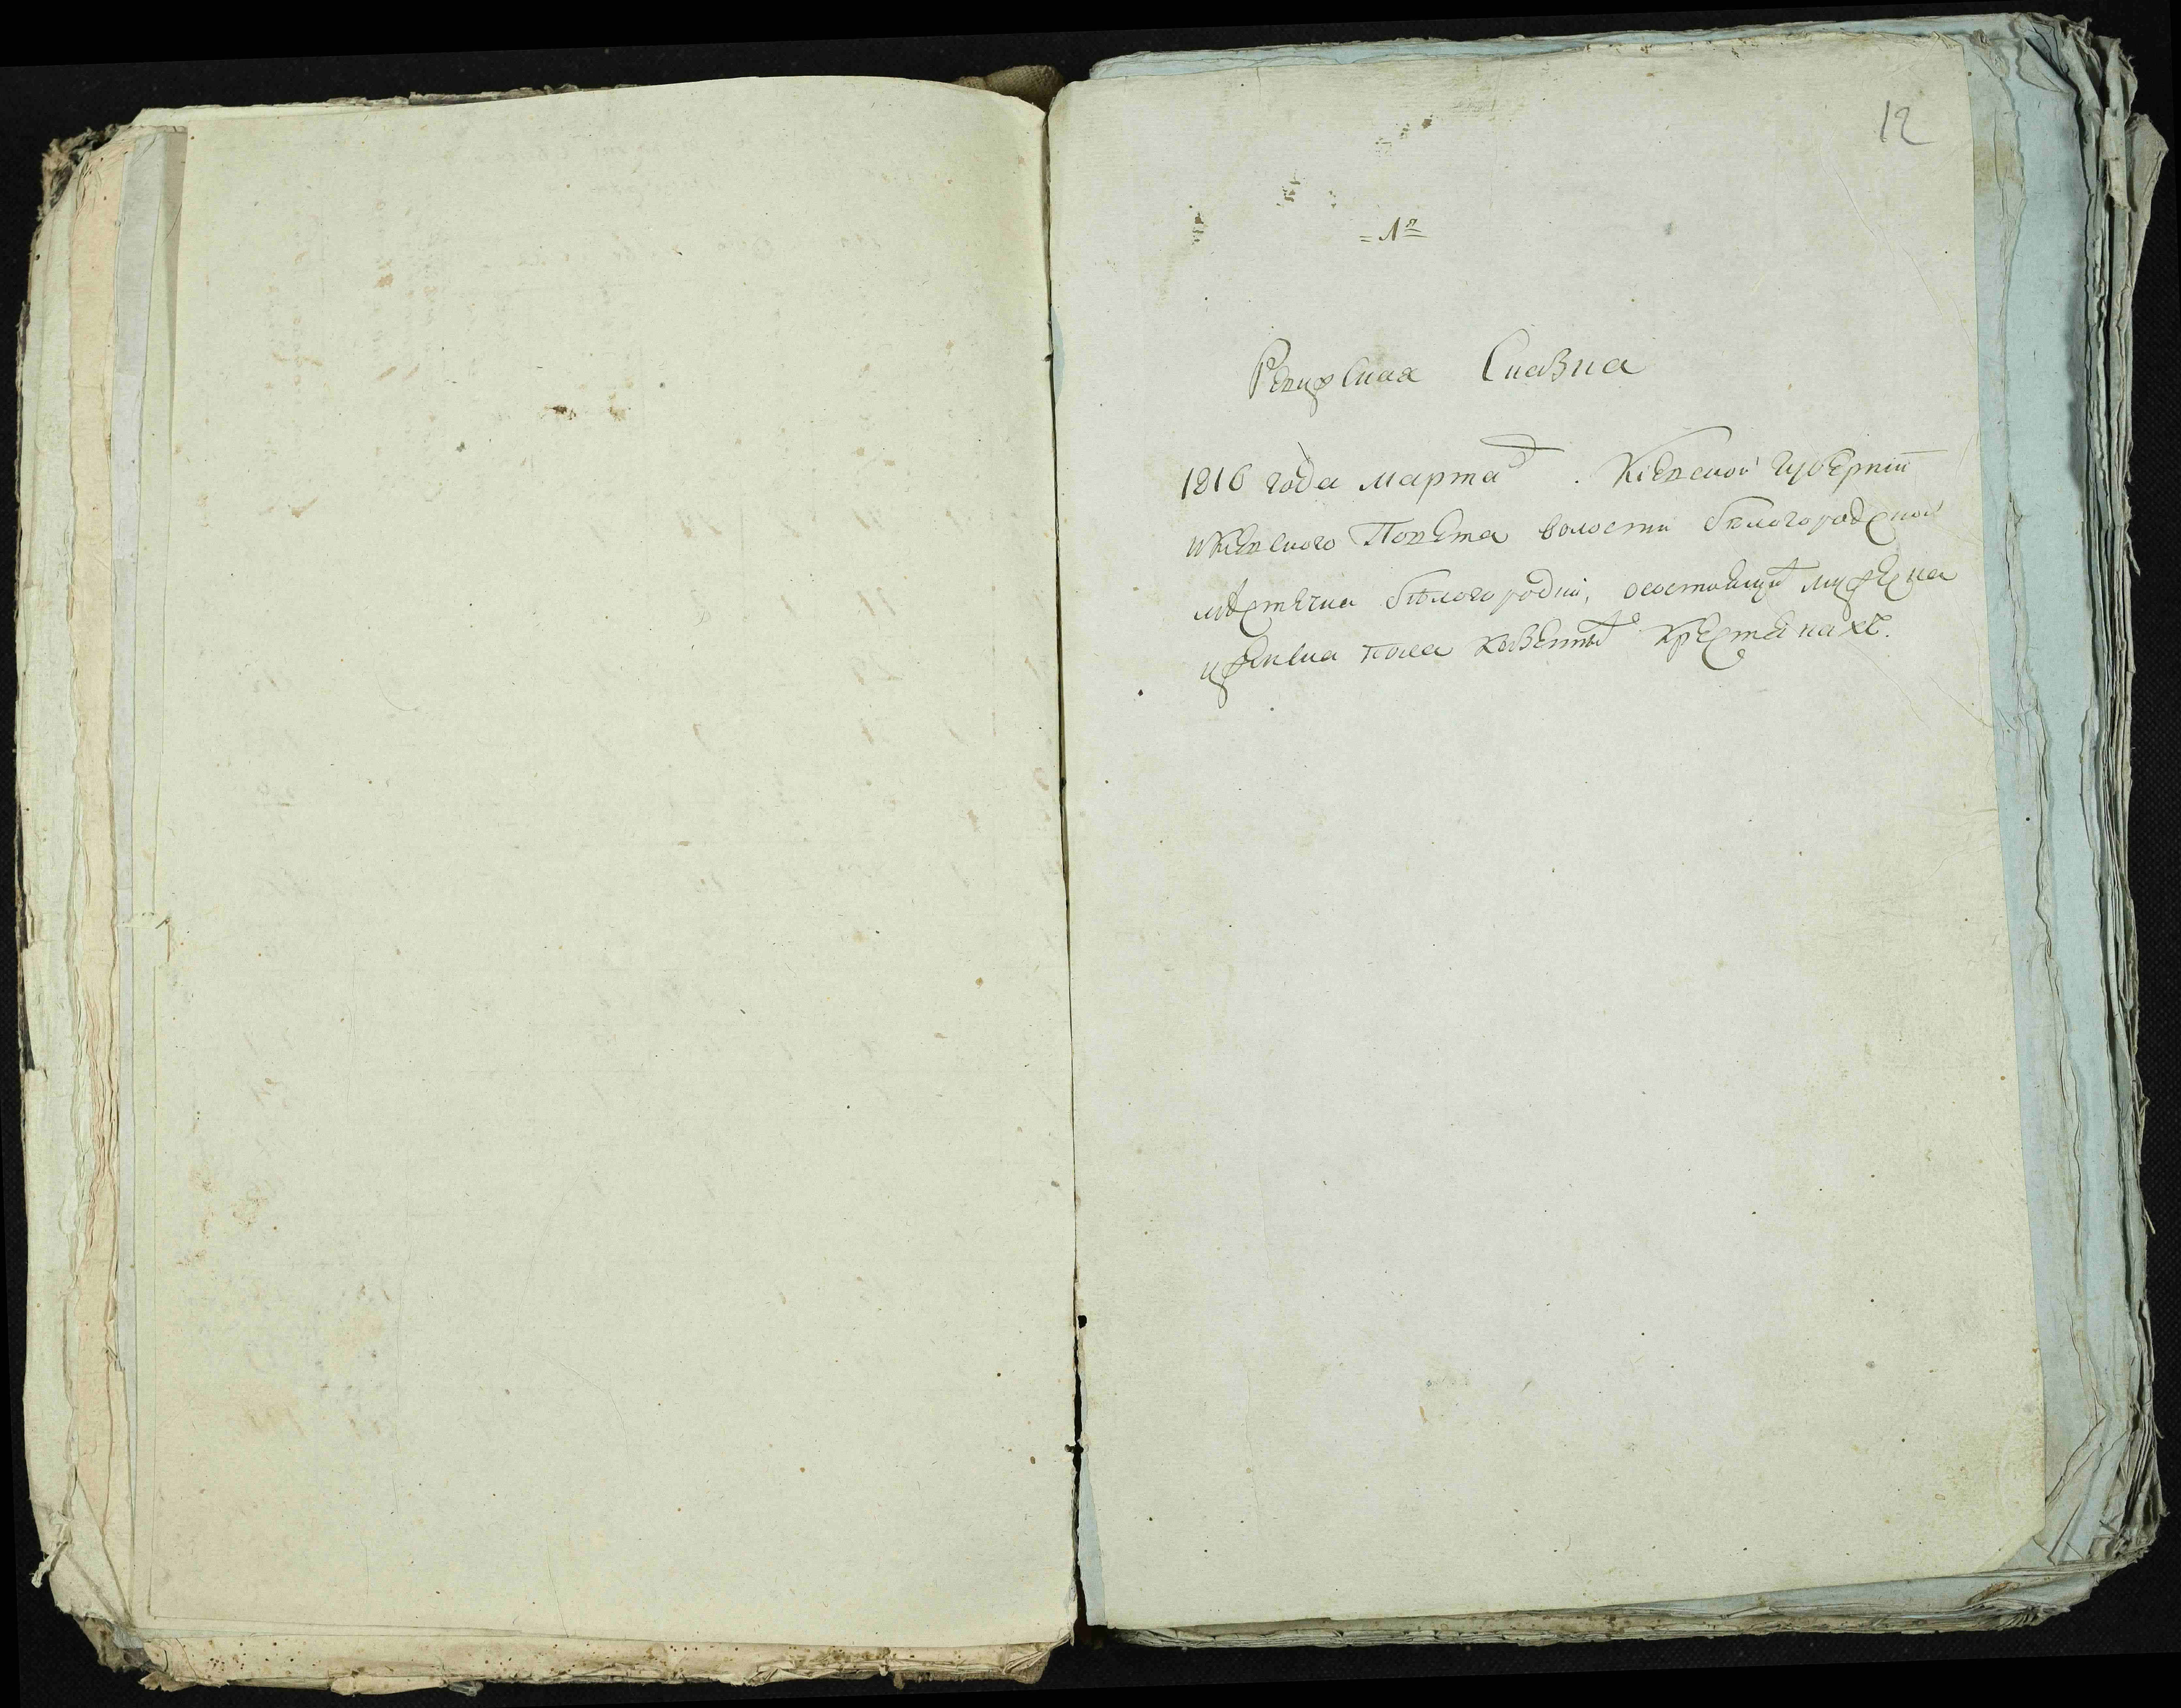 12
= 1я =
Ревизская Сказка
1816 года марта д. Кіевской губерніи
Икіевского Повета волости белогородской
местечка белогородки, осостоящихъ мужеска
иженска пола казенныхъ крестьянахъ.